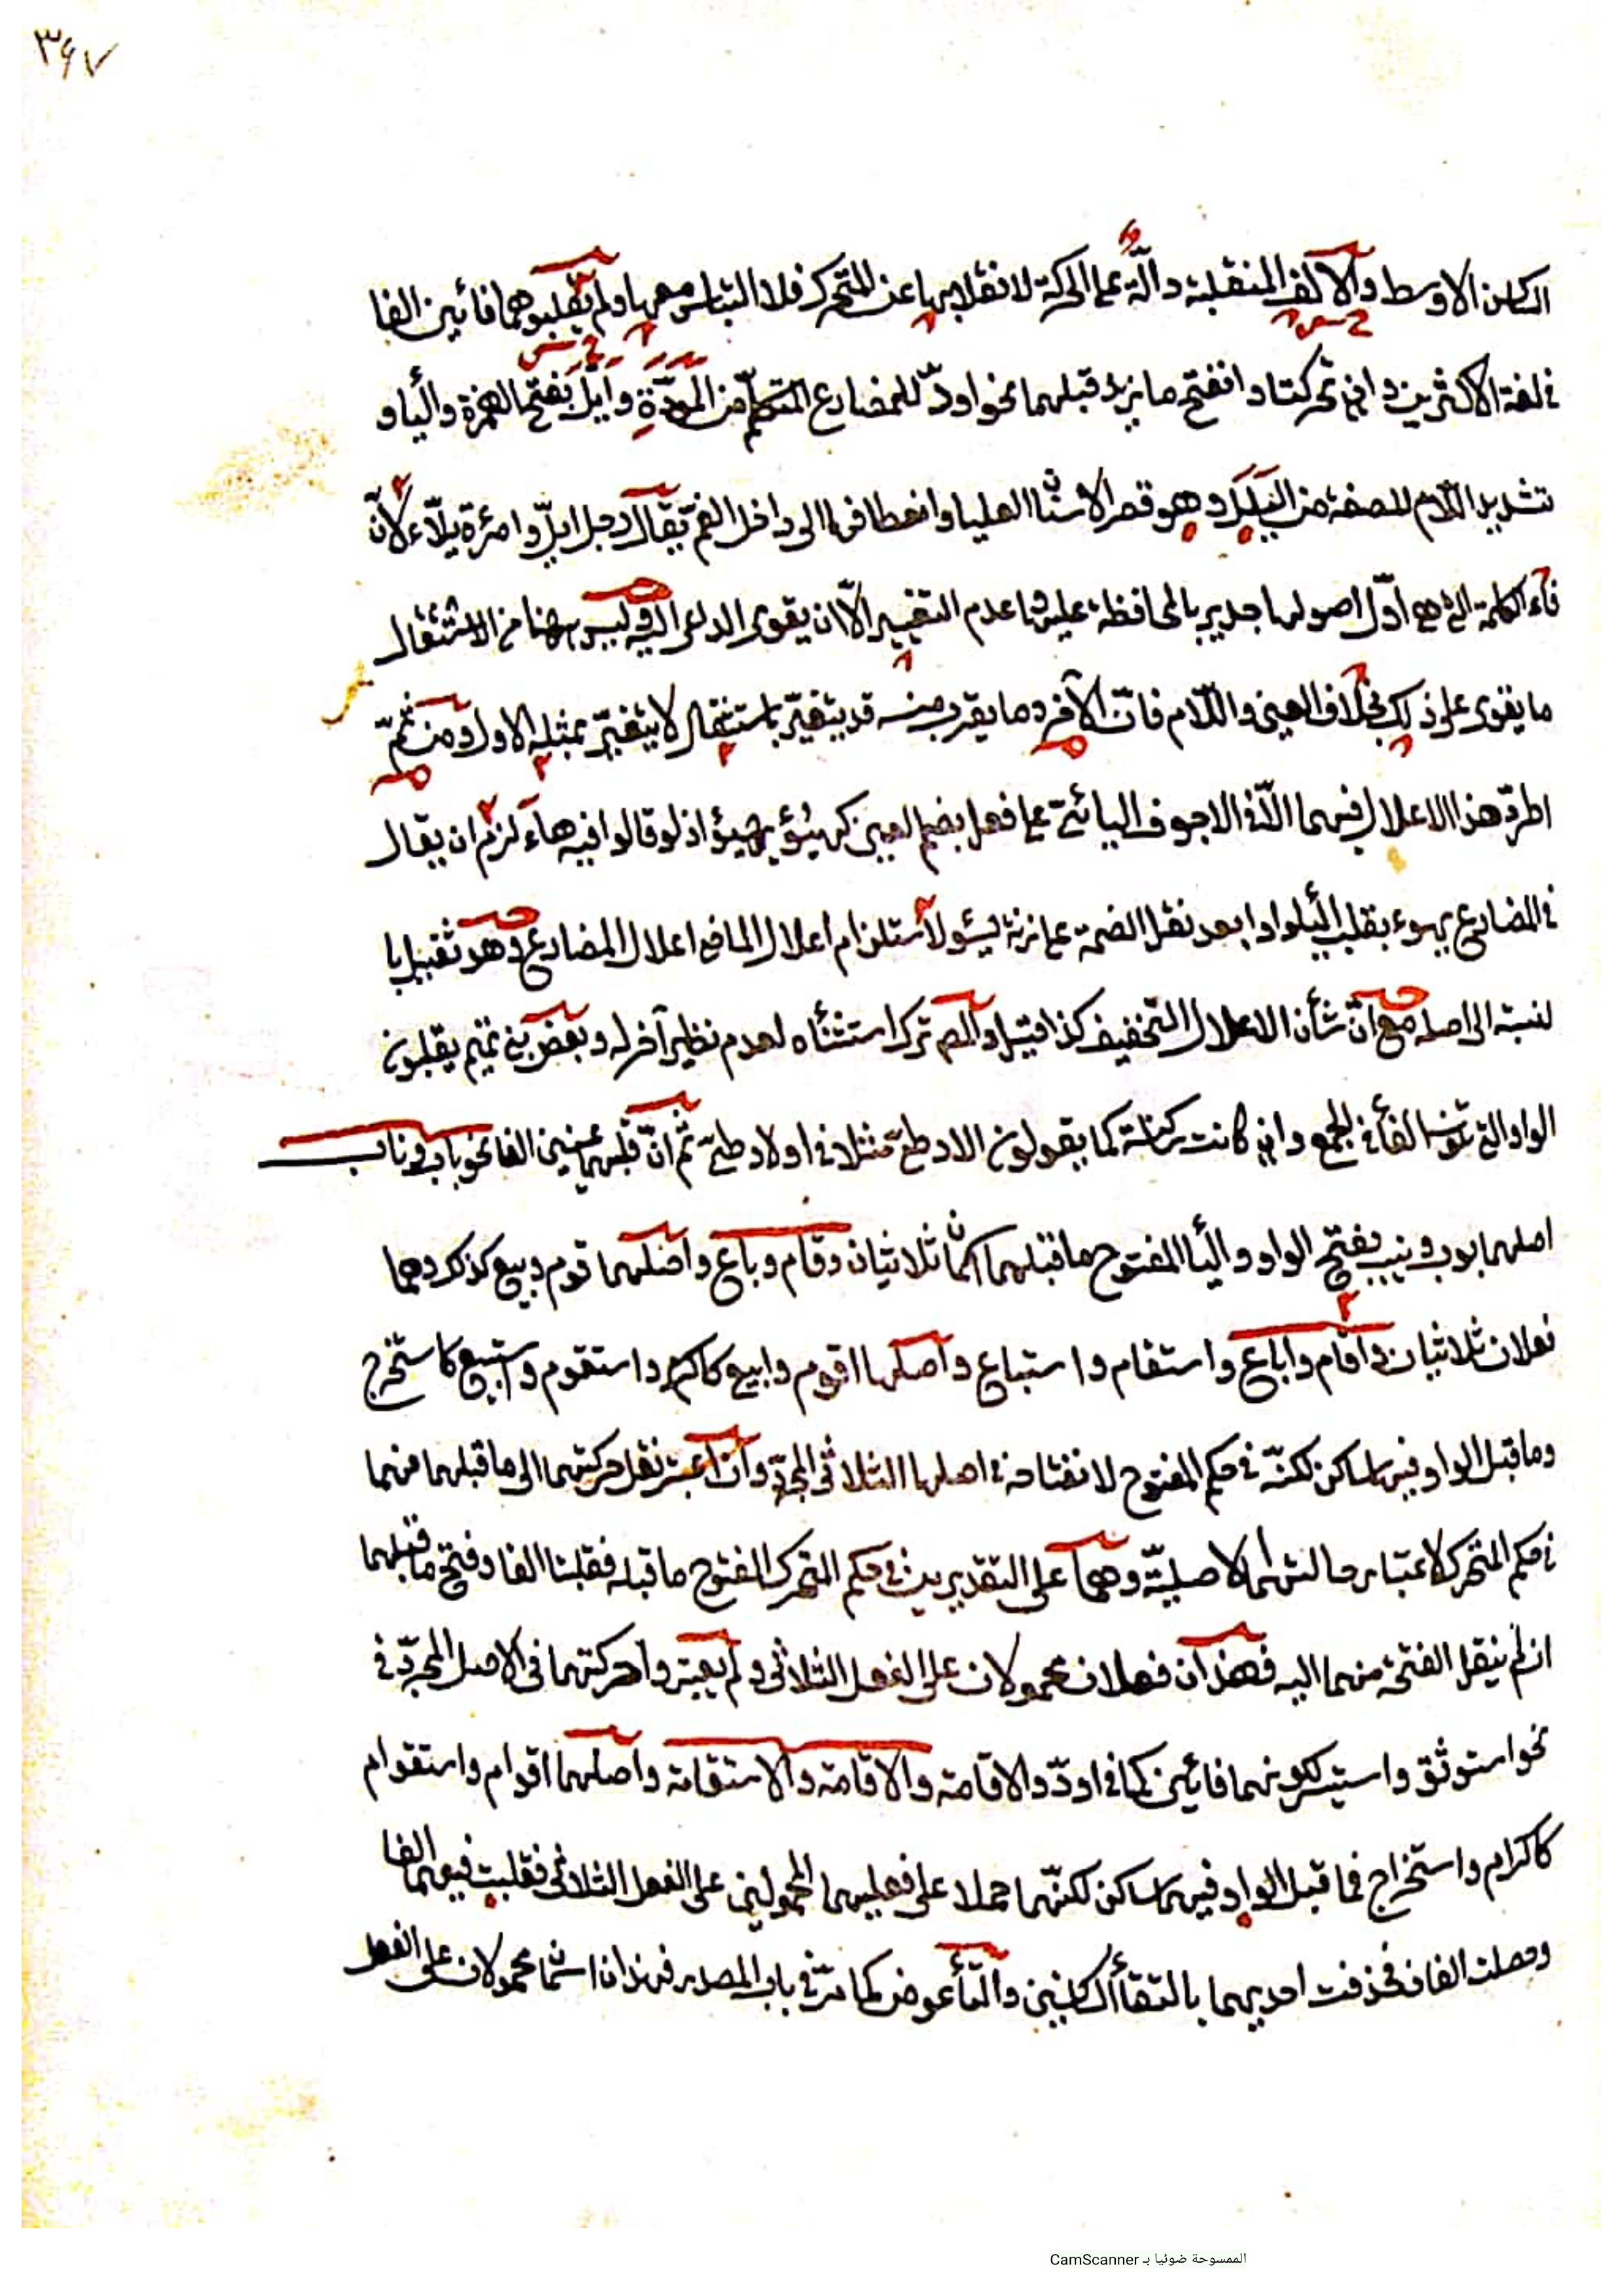 ٣٤٧
الساكن الاوسط والالف المنقلبة دالّة على الحركة لانقلابها عن المتحرك فلا التباس معها ولم يقلبوهما فائين الفا
في لغة الاكثرين وان تحركتا وانفتح ما يزيد قبلهما نحو اودّ للمضارع المتكلم من المودّة وايلّ بفتح الهمزة والياء و
تشديد اللام للصفة من اليلل وهو قصر الاسنان العليا وانعطافها الى داخل الفم يقال رجل ايلّ وامرئة يلّاء لانّ
فاء الكلمة التي هي اوّل اصولها جدير بالمحافظة عليها عدم التغيير الّا ان يقوى الداعى اليه وليس ههنا من الاستثقال
ما يقوى على ذلك بخلاف العين واللام فانّ الآخر وما يقرب منه قد يتغيّر باستثقال لا يتغيّر بمثله الاول ومن ثمّ
اطرد هذا الاعلال فيهما الّا في الاجوف اليائي على فعل بضم العين كهيؤ يهيؤ اذ لو قالوا فيه هاء لزم ان يقال
في المضارع يهوء بقلب الياء واوا بعد نقل الضمة على زنة يسؤ لاستلزام اعلال الماضي اعلال المضارع وهو ثقيل با
لنسبة الى اصله مع انّ شأن الاعلال التخفيف كذا قيل والمصم ترك استثنائه لعدم نظير آخر له وبعض بني تميم يقلبون
الواو التي الفا في الجمع وان كانت كما يقولون الاد طي مثلا في اولاد طي ثم انّ قلبهما عينين الفا نحو باب وناب
اصلهما بوب ونيب بفتح الواو والياء المفتوح ما قبلهما اسمان ثلاثيان وقام وباع واصلهما قوم وبيع كذكر وهما
فعلان ثلاثيان واقام واباع واستقام واستباع واصلها اقوم وابيع كاكرم واستقوم واستبيع كاستخرج
وما قبل الواو فيها ساكن لكنّه في حكم المفتوح لانفتاحه في اصلها الثلاثى المجرّد وان اعتبر نقل حركتهما الى ما قبلهما فهما
في حكم المتحرك لاعتبار حالتهما الاصليّة وهما على التقديرين في حكم المتحرك المفتوح ما قبله فقلبتا الفا وفتح ما قبلهما
ان لم ينقل الفتحة منهما اليه فهذان فعلان محمولان على الفعل الثلاثى ولم يعتبروا حركتهما فى الاصل المجرّد في
نحو استوثق واستيسر لكونهما فائين كما في اودّ والاقامة والاقامة والاستقامة واصلهما اقوام واستقوام
كاكرام واستخراج فما قبل الواو فيهما ساكن لكنّهما حملا على فعليهما المحمولين على الفعل الثلاثى فقلبت فيهما الفا
وحصلت الفان فحذفت احديهما بالتقاء الساكنين والتاء عوض كما مرّ في باب المصدر فهذان اسمان محمولان على الفعل
الممسوحة ضوئيا بـ CamScanner